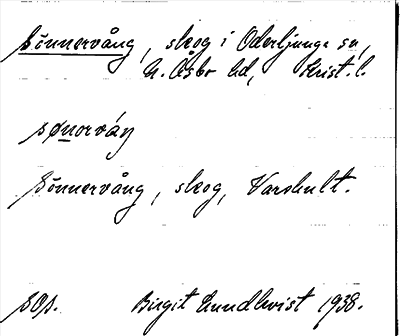 Sönnervång, skog i Oderljunga sn,
N. Åsbo hd, Krist. l.
sønorváŋ
Sönnervång, skog, Varshult.
sop. Birgit Lundkvist 1938.